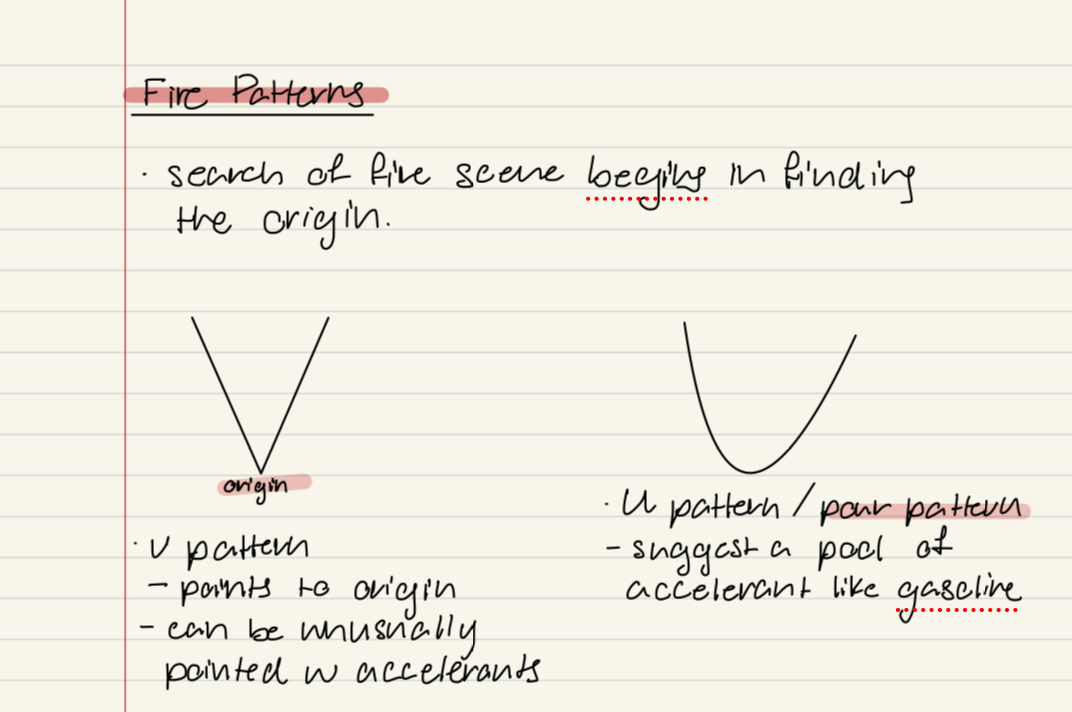 Fire Patterns
· search of fire scene begins in finding
the origin.
origin
· V pattern
- points to origin
- can be unusually
pointed w accelerants
· U pattern / pour pattern
- suggest a pool of
accelerant like gasoline